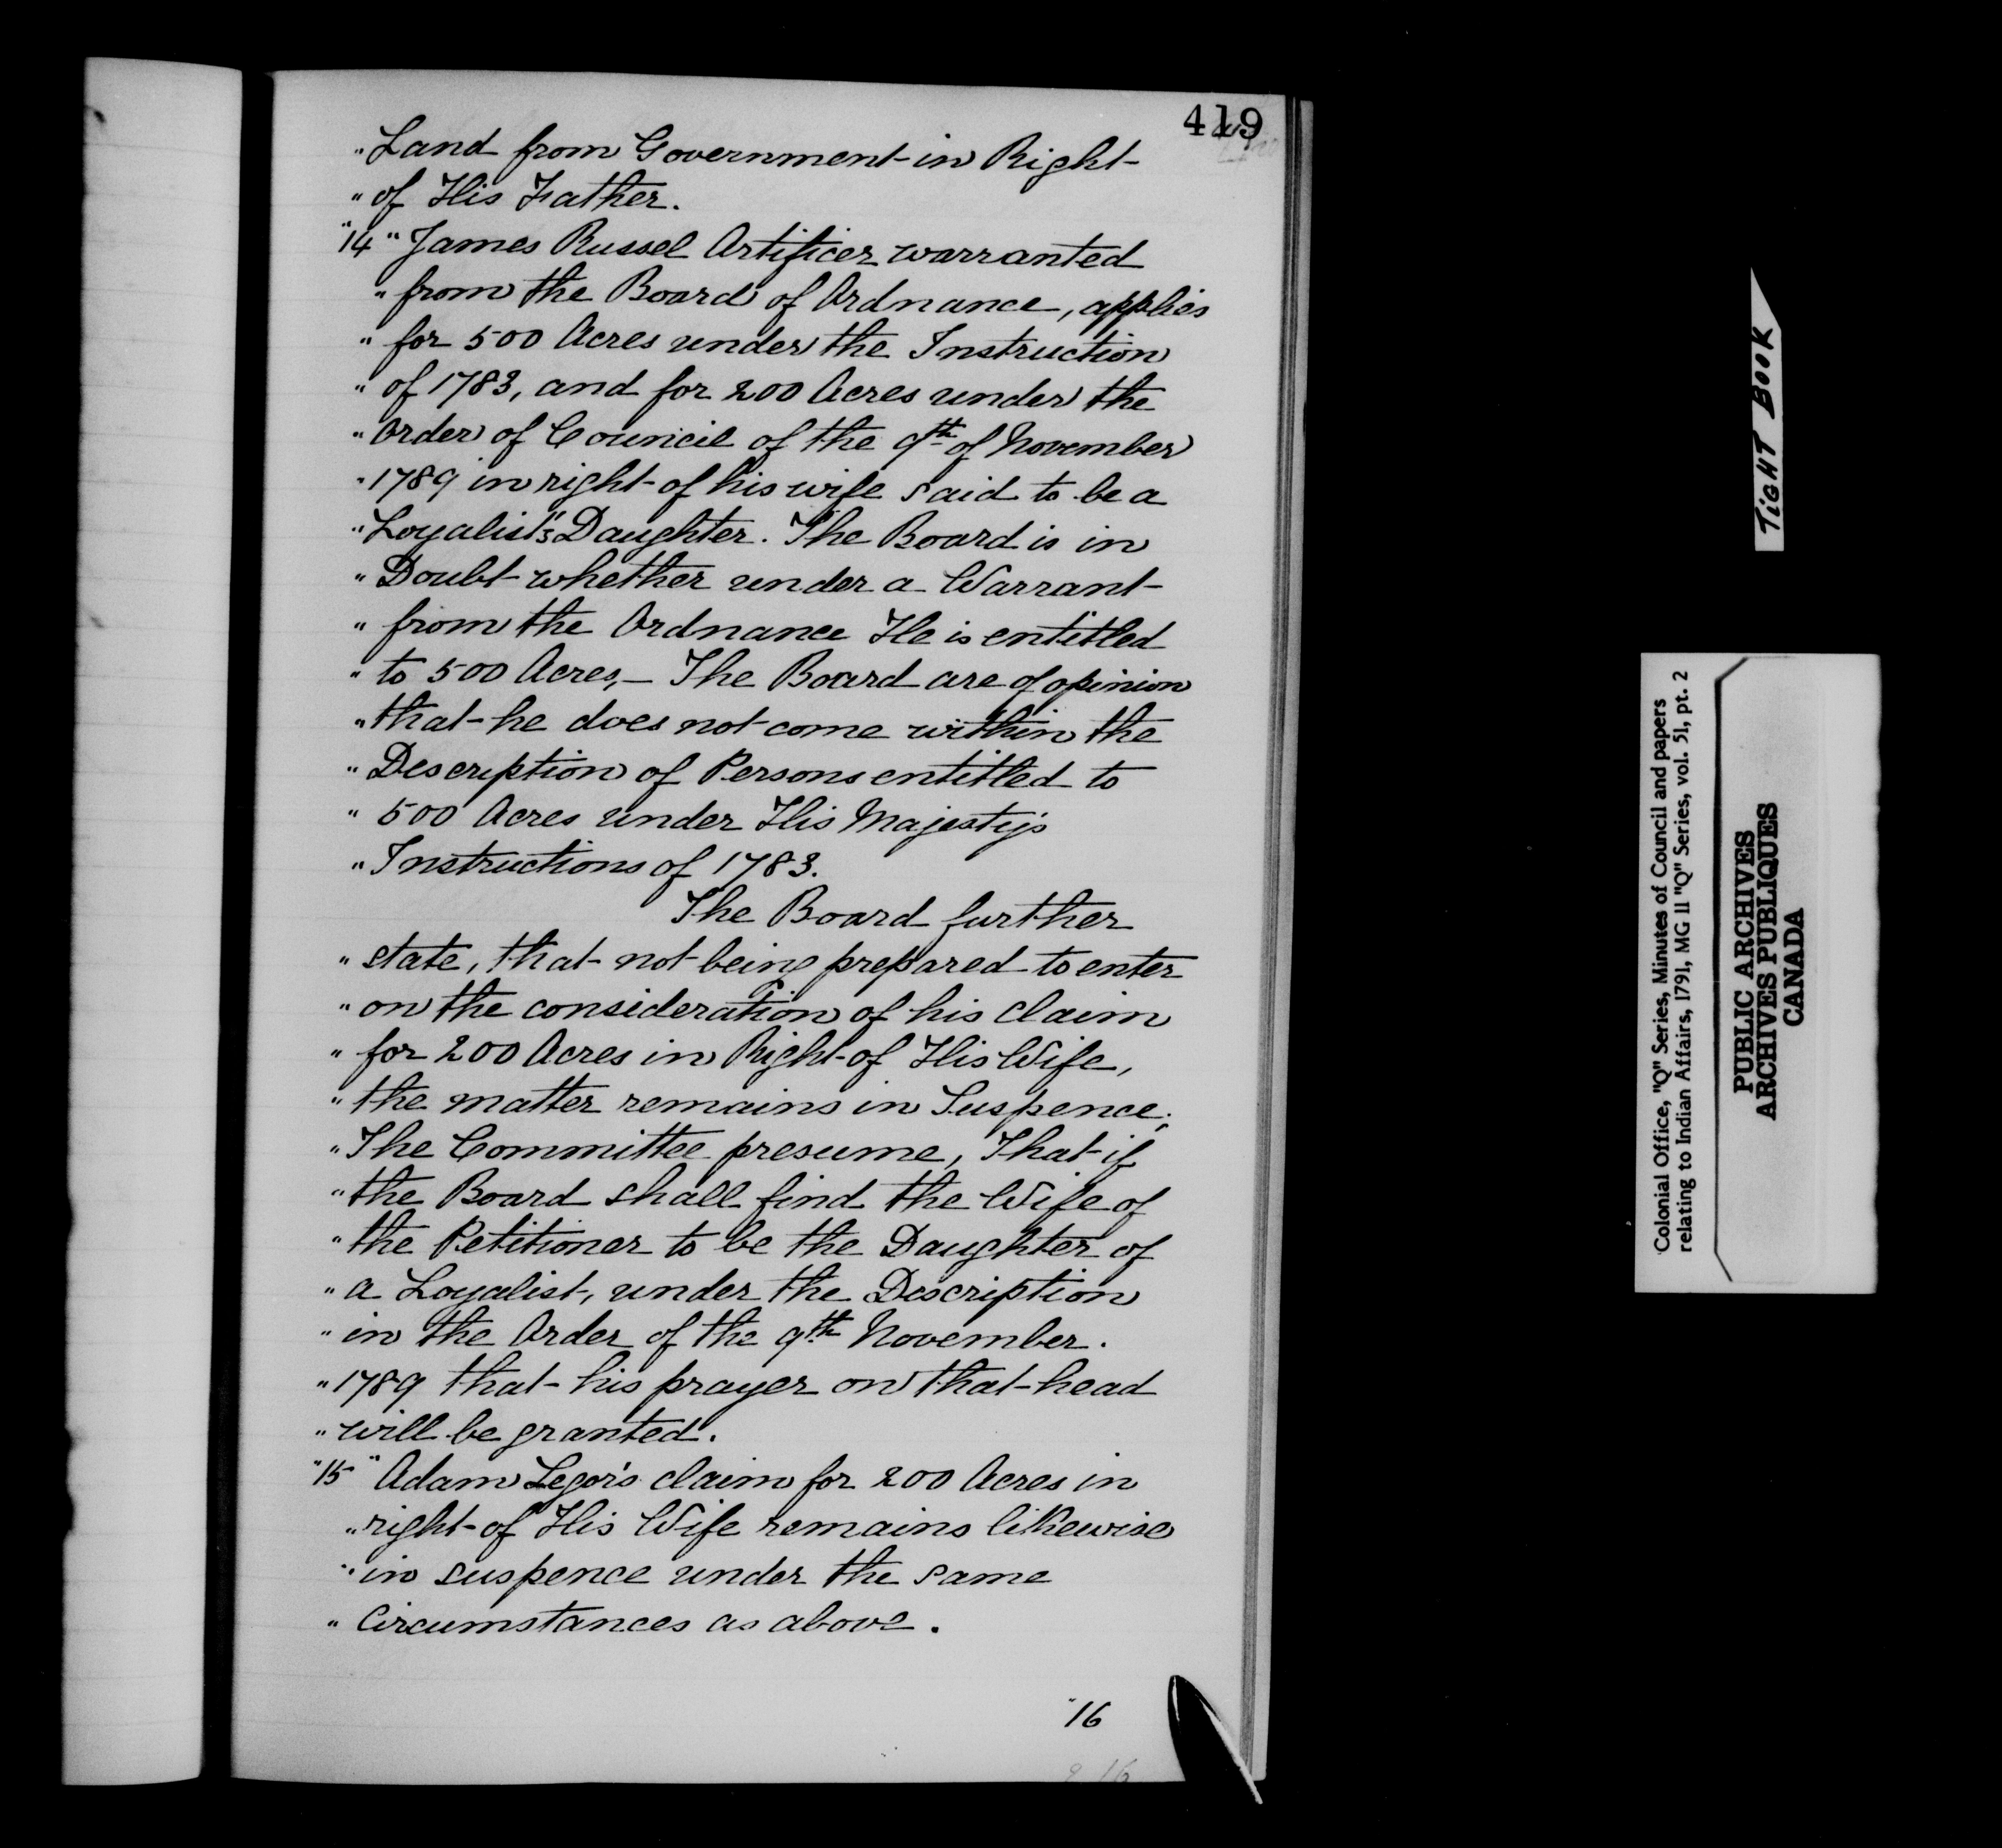 419
"Land from Government in Right
"of His Father.
"14" James Russel Artificer warranted
"from the Board of Ordnance, applies
"for 500 Acres under the Instruction
"of 1783, and for 200 Acres under the
"Order of Council of the 9th of November
"1789 in right of his wife said to be a
"Loyalist's Daughter. The Board is in
"Doubt whether under a Warrant
"from the Ordnance He is entitled
"to 500 Acres,— The Board are of opinion
"that he does not come within the
"Description of Persons entitled to
"500 Acres under His Majesty's
"Instructions of 1783.
The Board further
"state, that not being prepared to enter
"on the consideration of his claim
"for 200 Acres in Right of His Wife,
"the matter remains in Suspence;
"The Committee presume, That if
"the Board shall find the Wife of
"the Petitioner to be the Daughter of
"a Loyalist, under the Description
"in the Order of the 9th November.
"1789 that his prayer on that head
"will be granted.
"15" Adam Legor's claim for 200 Acres in
"right of His Wife remains likewise
"in suspence under the same
"Circumstances as above.
"16
TIGHT BOOK
Colonial Office, "Q" Series, Minutes of Council and papers
relating to Indian Affairs, 1791, MG 11 "Q" Series, vol. 51, pt. 2
PUBLIC ARCHIVES
ARCHIVES PUBLIQUES
CANADA